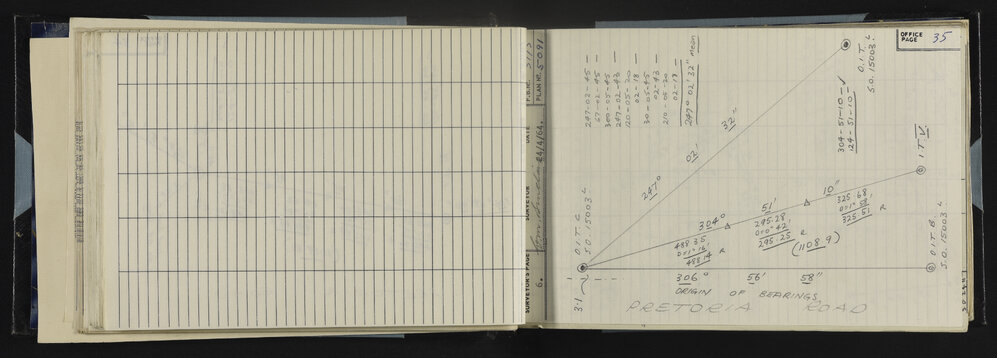 OFFICE
PAGE 35
SURVEYOR'S PAGE
6.
SURVEYOR
DATE
24/4/64.
PLAN No. 5091
247-02-45 —
67-02-45 —
300-05-45
247-02-43
120-05-20
02-18 —
30-05-45
02-43 —
210-05-20
02-17 —
247° 02' 32" Mean
O.I.T.
S.O. 15003.
304-51-10-
124-51-10-
I.T. V.
247° 02' 32"
O.I.T. C
S.O. 15003
304° 51' 10"
488.35
0+1°16
488.14 R
295.28
0+0°42'
295.25 R
325.68
0+1°58'
325.51 R
(1108.9)
O.I.T. B.
S.O. 15003
306° 56' 58"
ORIGIN OF BEARINGS
3.1
PRETORIA ROAD